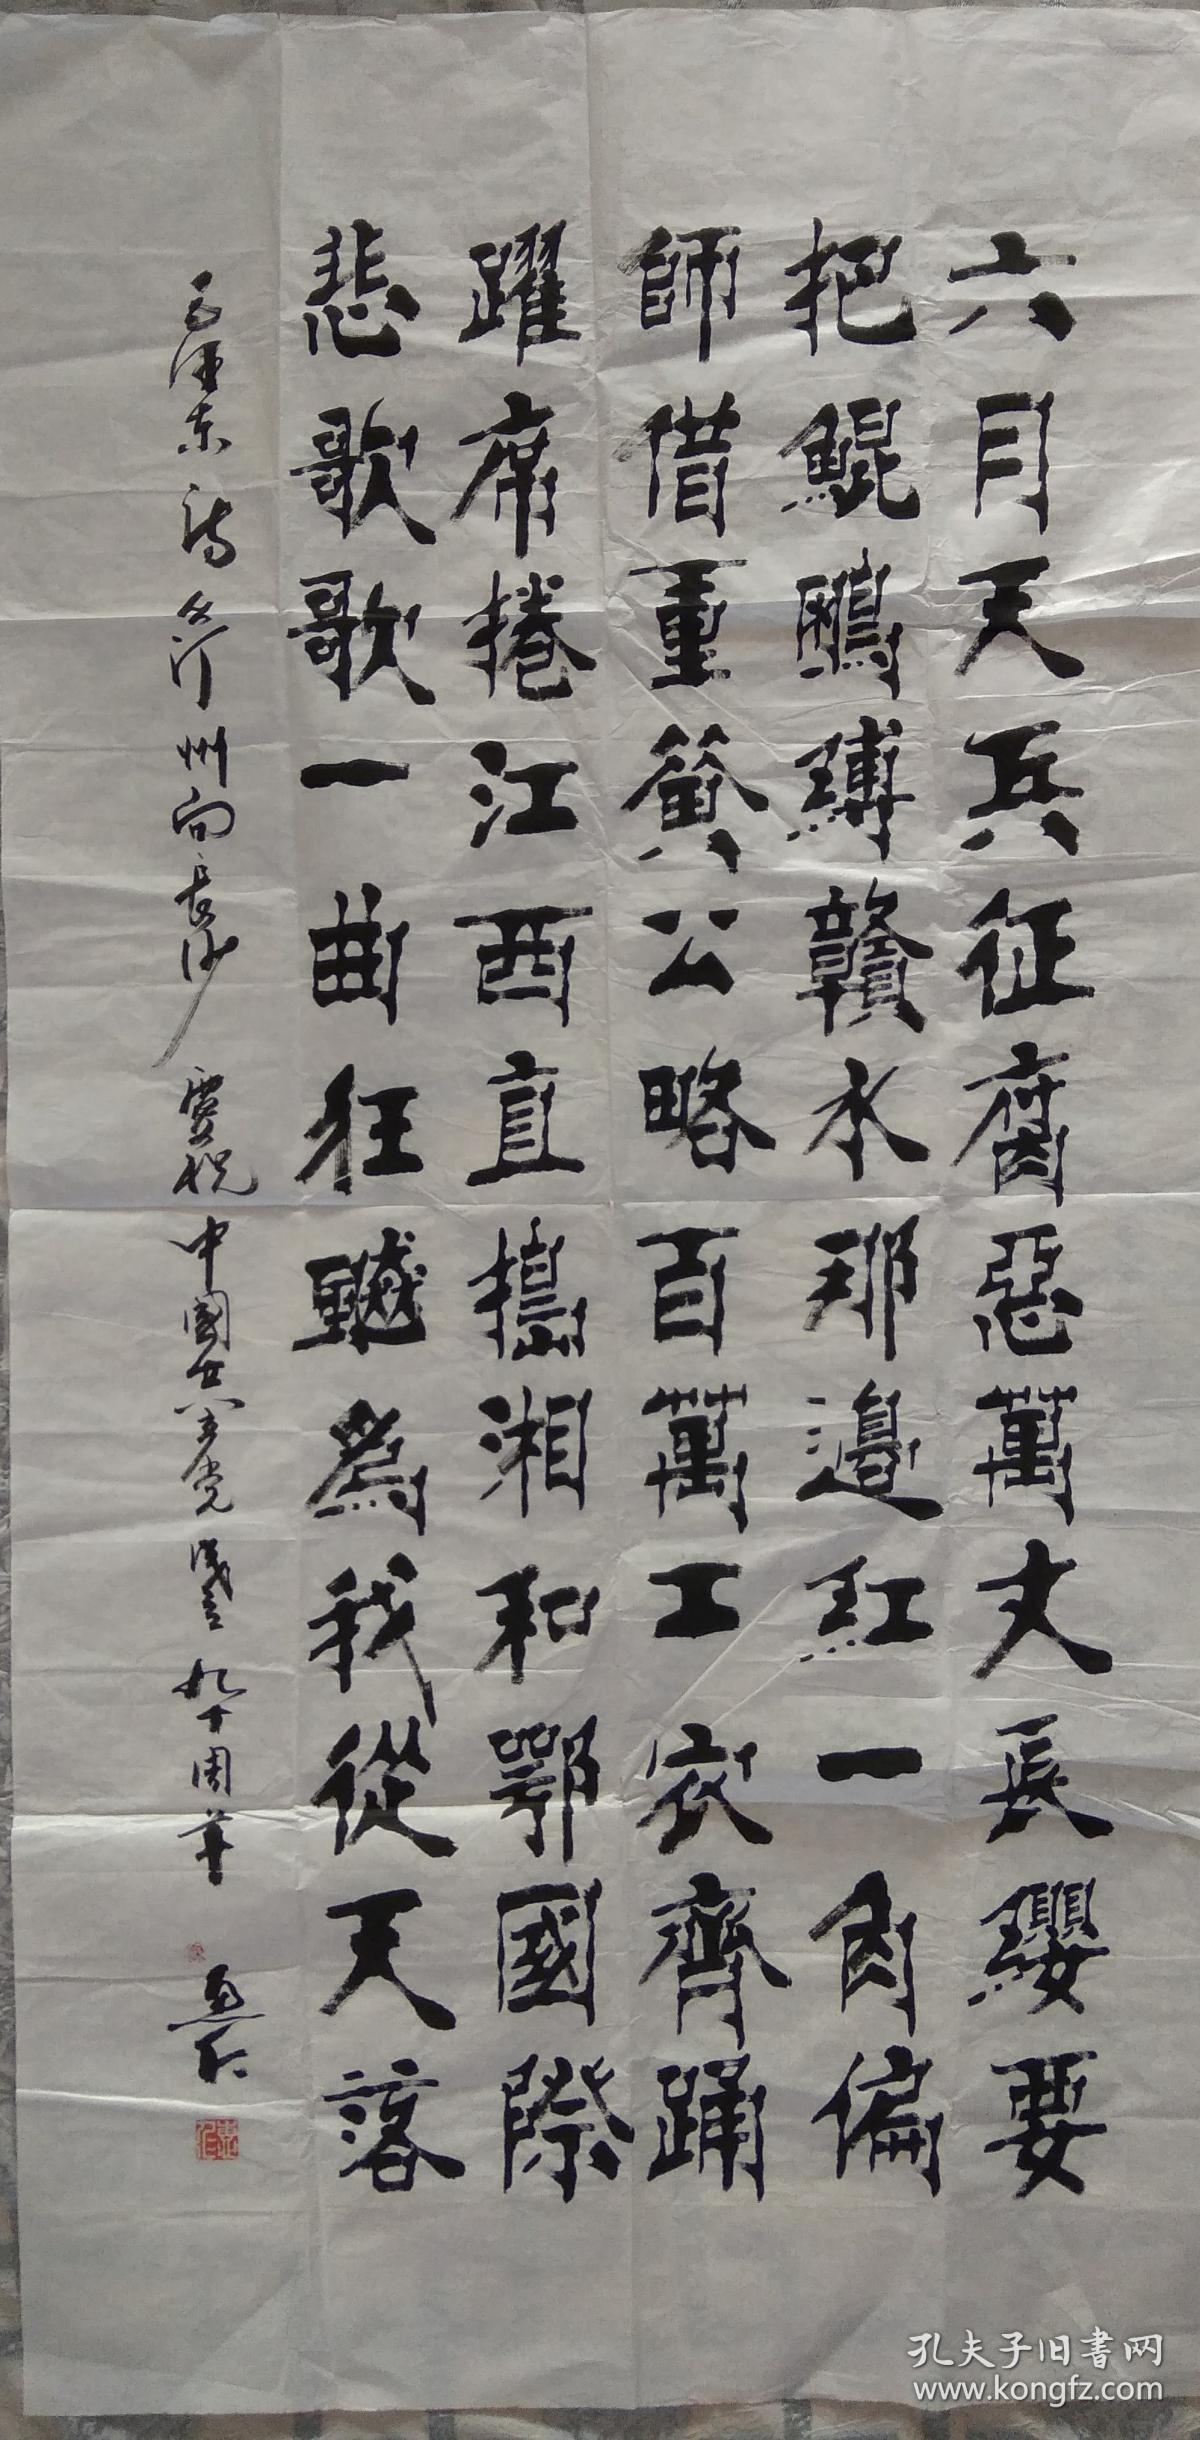 六月天兵征腐惡萬丈長纓要
把鯤鵬縛贛水那邊紅一角偏
師借重黃公略百萬工农齊踊
躍席捲江西直搗湘和鄂國際
悲歌歌一曲狂飆為我從天落
毛澤东詩从汀州向長沙慶祝中國共產党成立九十周年
孔夫子旧書网
www.kongfz.com